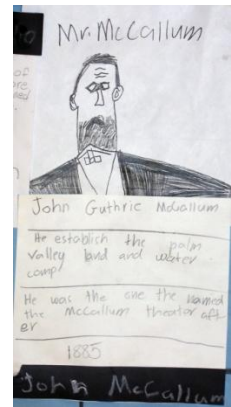 Mr. McCallum
of
John Guthrie McCallum
He establich the palm
valley land and water
comp
He was the one the named
the McCallum theator aft
er
1885
John McCallum